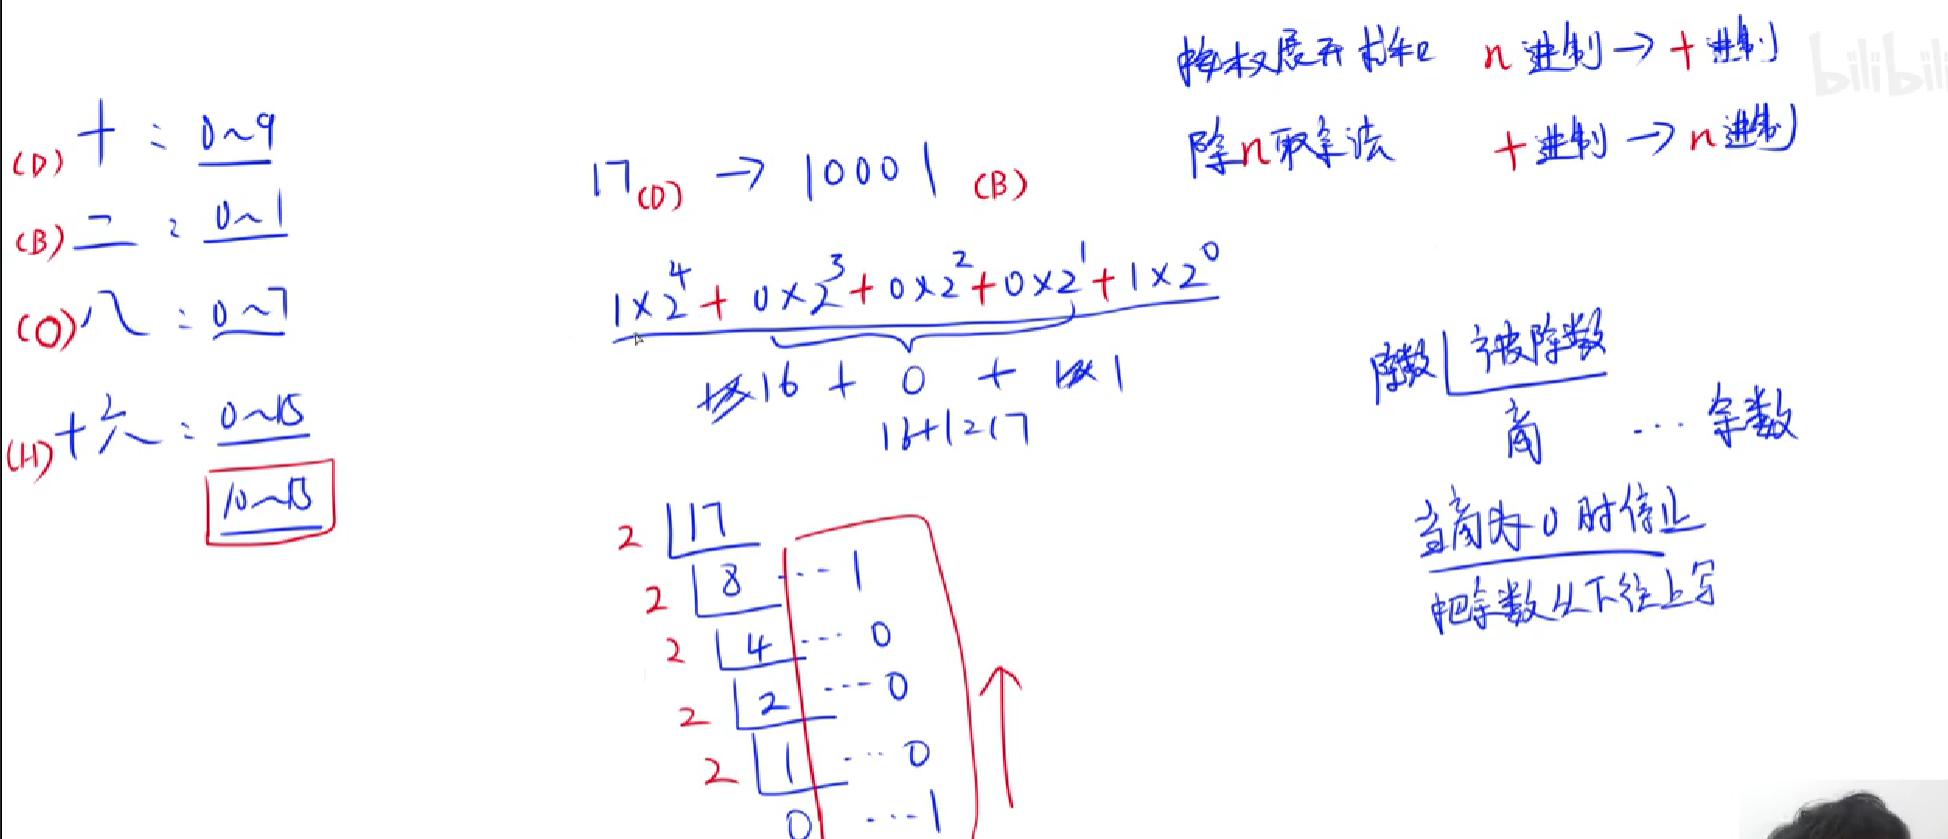 按权展开求和 n进制→十进制
除n取余法 十进制→n进制
bilibili
(D) 十：0~9
(B) 二：0~1
(O) 八：0~7
(H) 十六：0~15
10~15
17(D) → 10001 (B)
1×2⁴+0×2³+0×2²+0×2¹+1×2⁰
16 + 0 + 1
16+1=17
2 17
2 8 ... 1
2 4 ... 0
2 2 ... 0
2 1 ... 0
0 ... 1
除数 被除数
商 ... 余数
当商为0时停止
把余数从下往上写